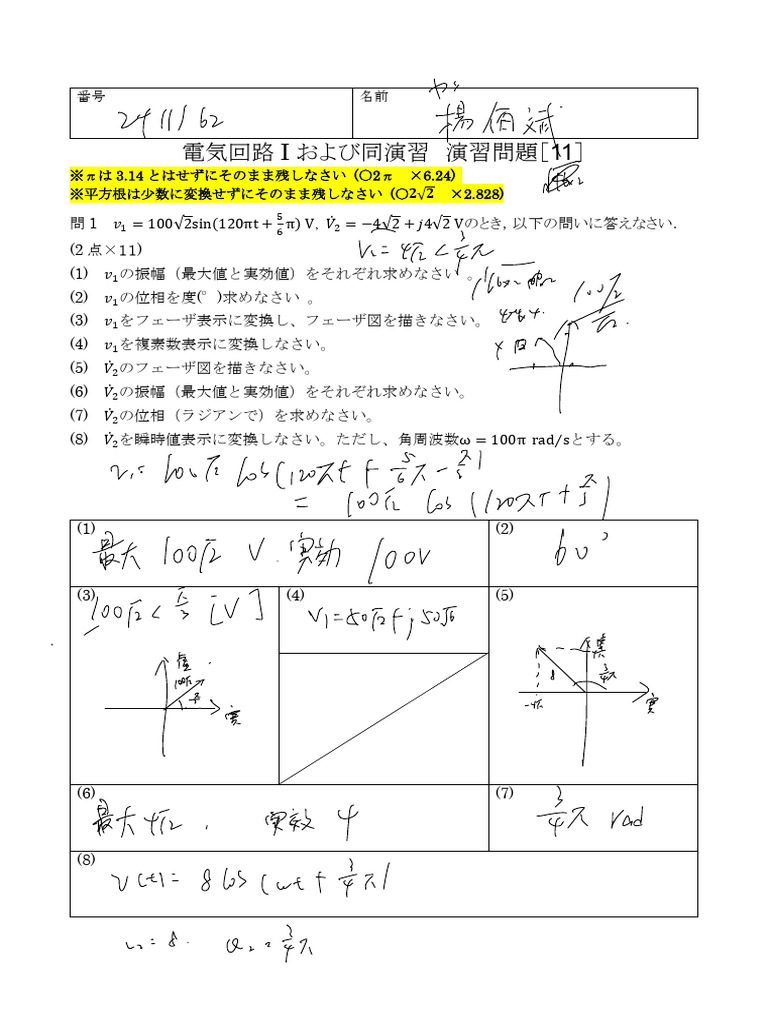 番号
2411162
名前
楊佰斌
電気回路Ⅰおよび同演習 演習問題［11］
※πは3.14とはせずにそのまま残しなさい (〇2π ×6.24)
※平方根は少数に変換せずにそのまま残しなさい (〇2√2 ×2.828)
問1 v₁ = 100√2sin(120πt + 5/6 π) V, V̇₂ = −4√2 + j4√2 Vのとき, 以下の問いに答えなさい.
(2点×11)
V₂ = 4√2 < 3/4 π
(1) v₁の振幅（最大値と実効値）をそれぞれ求めなさい 。
(2) v₁の位相を度(°)求めなさい 。
(3) v₁をフェーザ表示に変換し、フェーザ図を描きなさい。
(4) v₁を複素数表示に変換しなさい。
(5) V̇₂のフェーザ図を描きなさい。
(6) V̇₂の振幅（最大値と実効値）をそれぞれ求めなさい。
(7) V̇₂の位相（ラジアンで）を求めなさい。
(8) V̇₂を瞬時値表示に変換しなさい。ただし、角周波数ω = 100π rad/sとする。
100√2
V₁ = 100√2 cos(120πt + 5/6 π − π/2)
= 100√2 cos(120πt + π/3)
(1)
最大 100√2 V. 実効 100V
(2)
60°
(3)
100√2 < π/3 [V]
虚
100√2
π/3
実
(4)
V₁=50√2+j50√6
(5)
虚
8
3/4 π
-4√2
実
(6)
最大 4√2, 実数 4
(7)
3/4 π rad
(8)
v(t) = 8 cos(ωt + 3/4 π)
v₂ = 8. θ₂ = 3/4 π